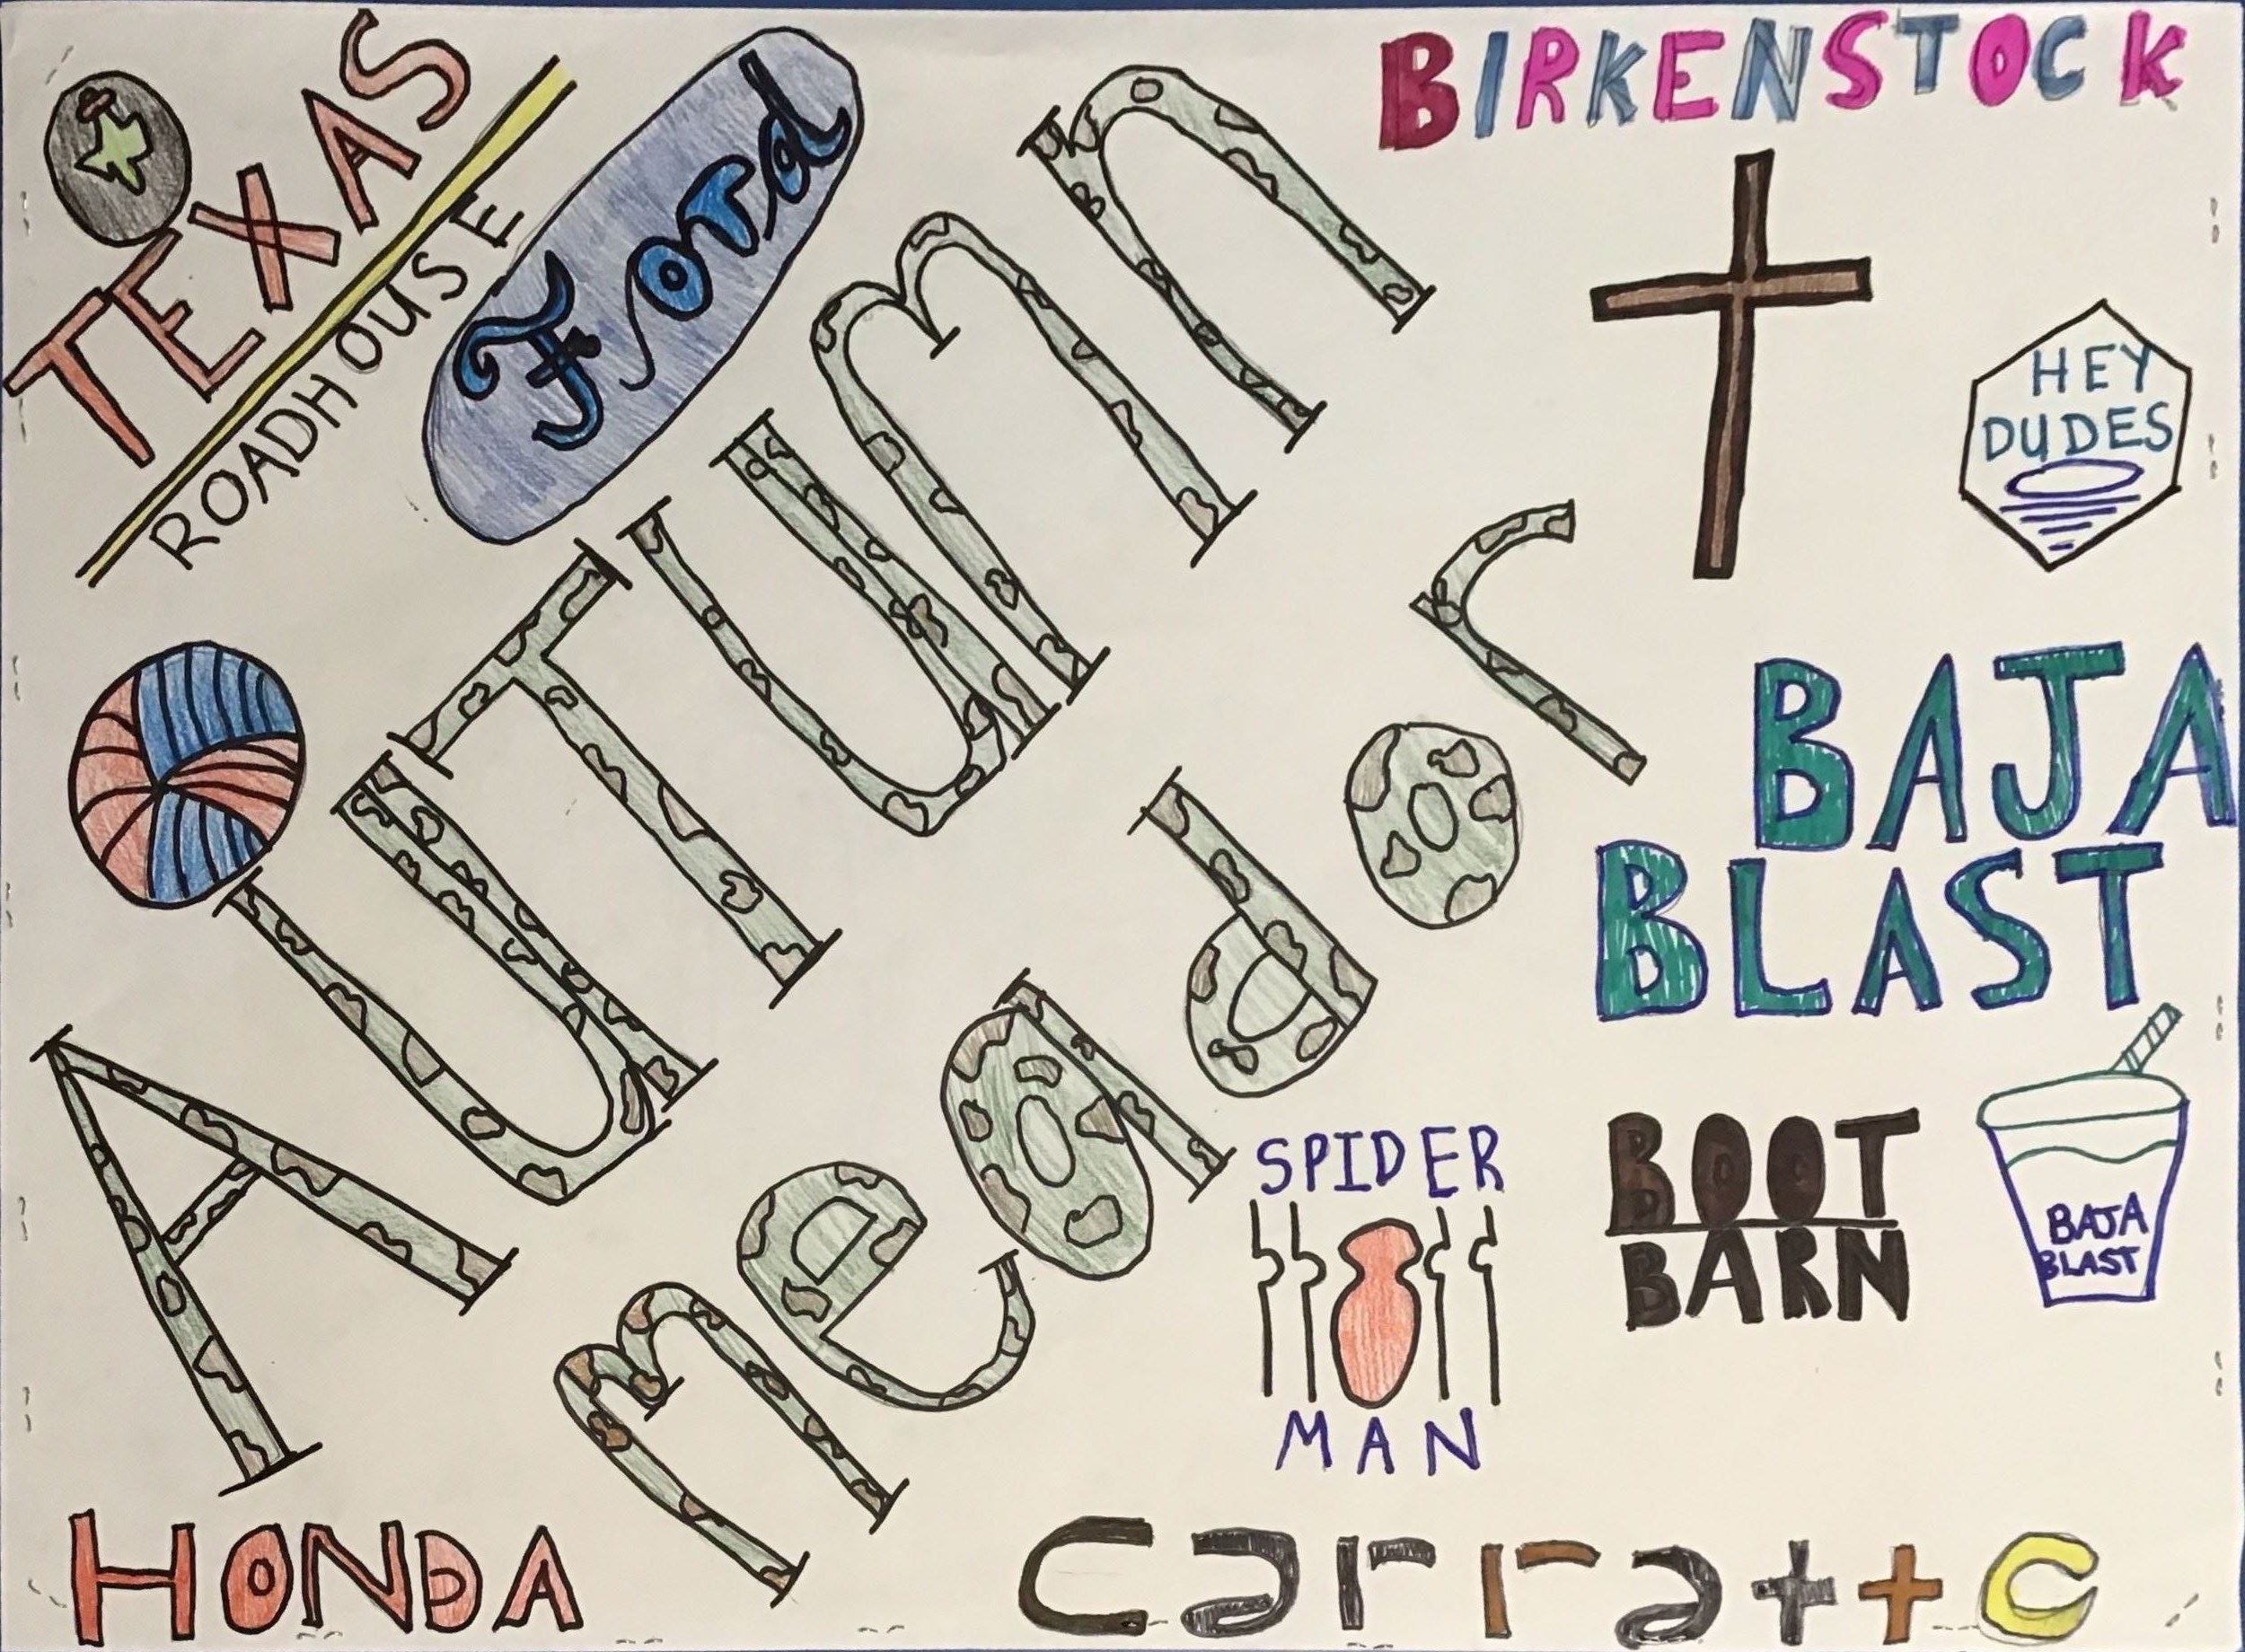 TEXAS
ROADHOUSE
Ford
BIRKENSTOCK
HEY
DUDES
AuTumn
meador
BAJA
BLAST
SPIDER
MAN
BOOT
BARN
BAJA
BLAST
HONDA
carrattc